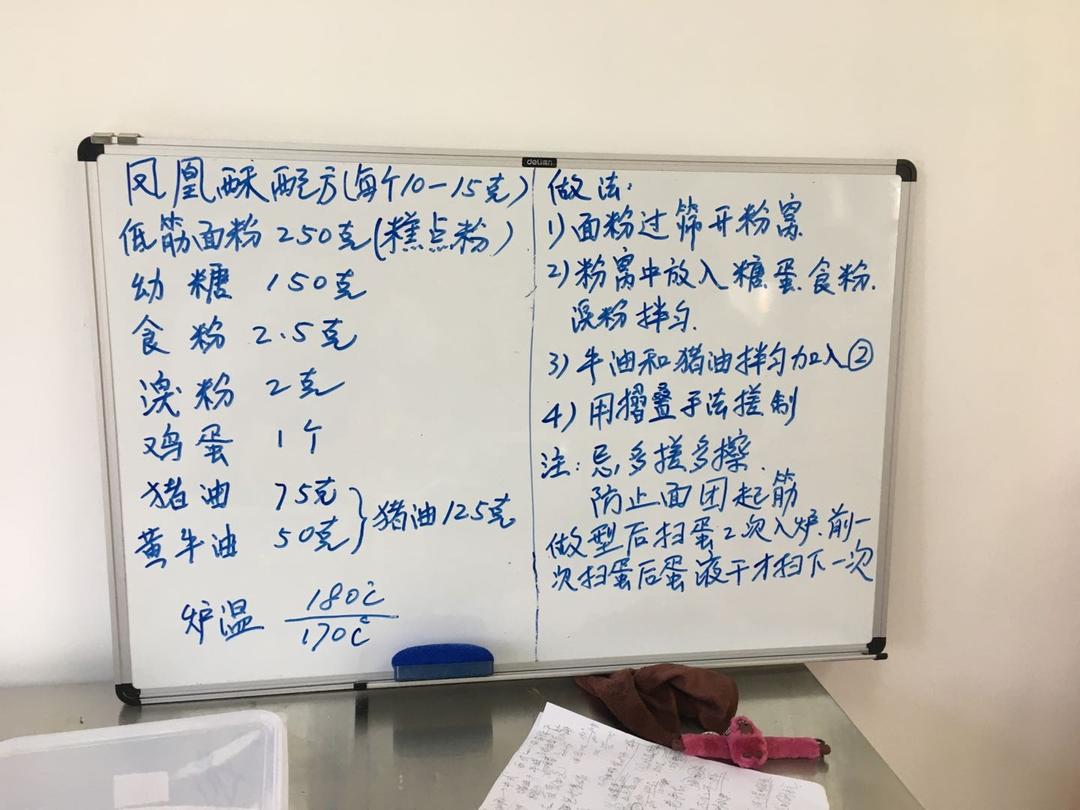 deli 得力
凤凰酥配方(每个10-15克)
低筋面粉 250克(糕点粉)
幼糖 150克
食粉 2.5克
溴粉 2克
鸡蛋 1个
猪油 75克
黄牛油 50克
}猪油125克
炉温 180℃/170℃
做法:
1)面粉过筛开粉窝
2)粉窝中放入糖.蛋.食粉.
溴粉拌匀.
3)牛油和猪油拌匀加入②
4)用摺叠手法搓制
注:忌多搓多擦.
防止面团起筋
做型后扫蛋2次入炉.前一
次扫蛋后蛋液干才扫下一次